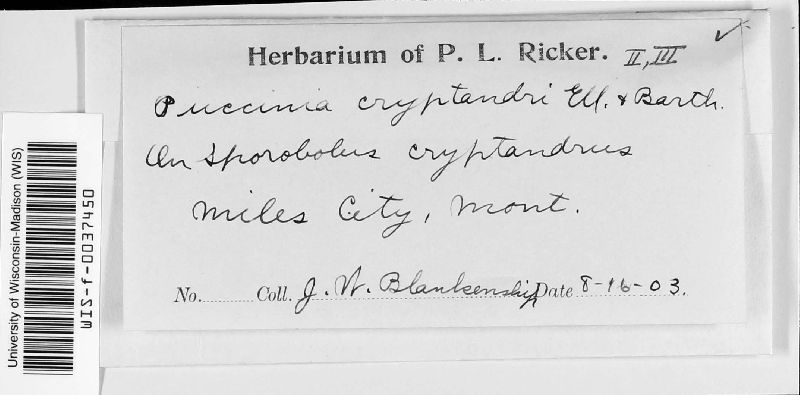 Herbarium of P. L. Ricker. II, III ✓
Puccinia cryptandri Ell. & Barth.
On Sporobolus cryptandrus
Miles City, Mont.
No. Coll. J. W. Blankenship Date 8-16-03.
University of Wisconsin-Madison (WIS)
WIS-f-0037450